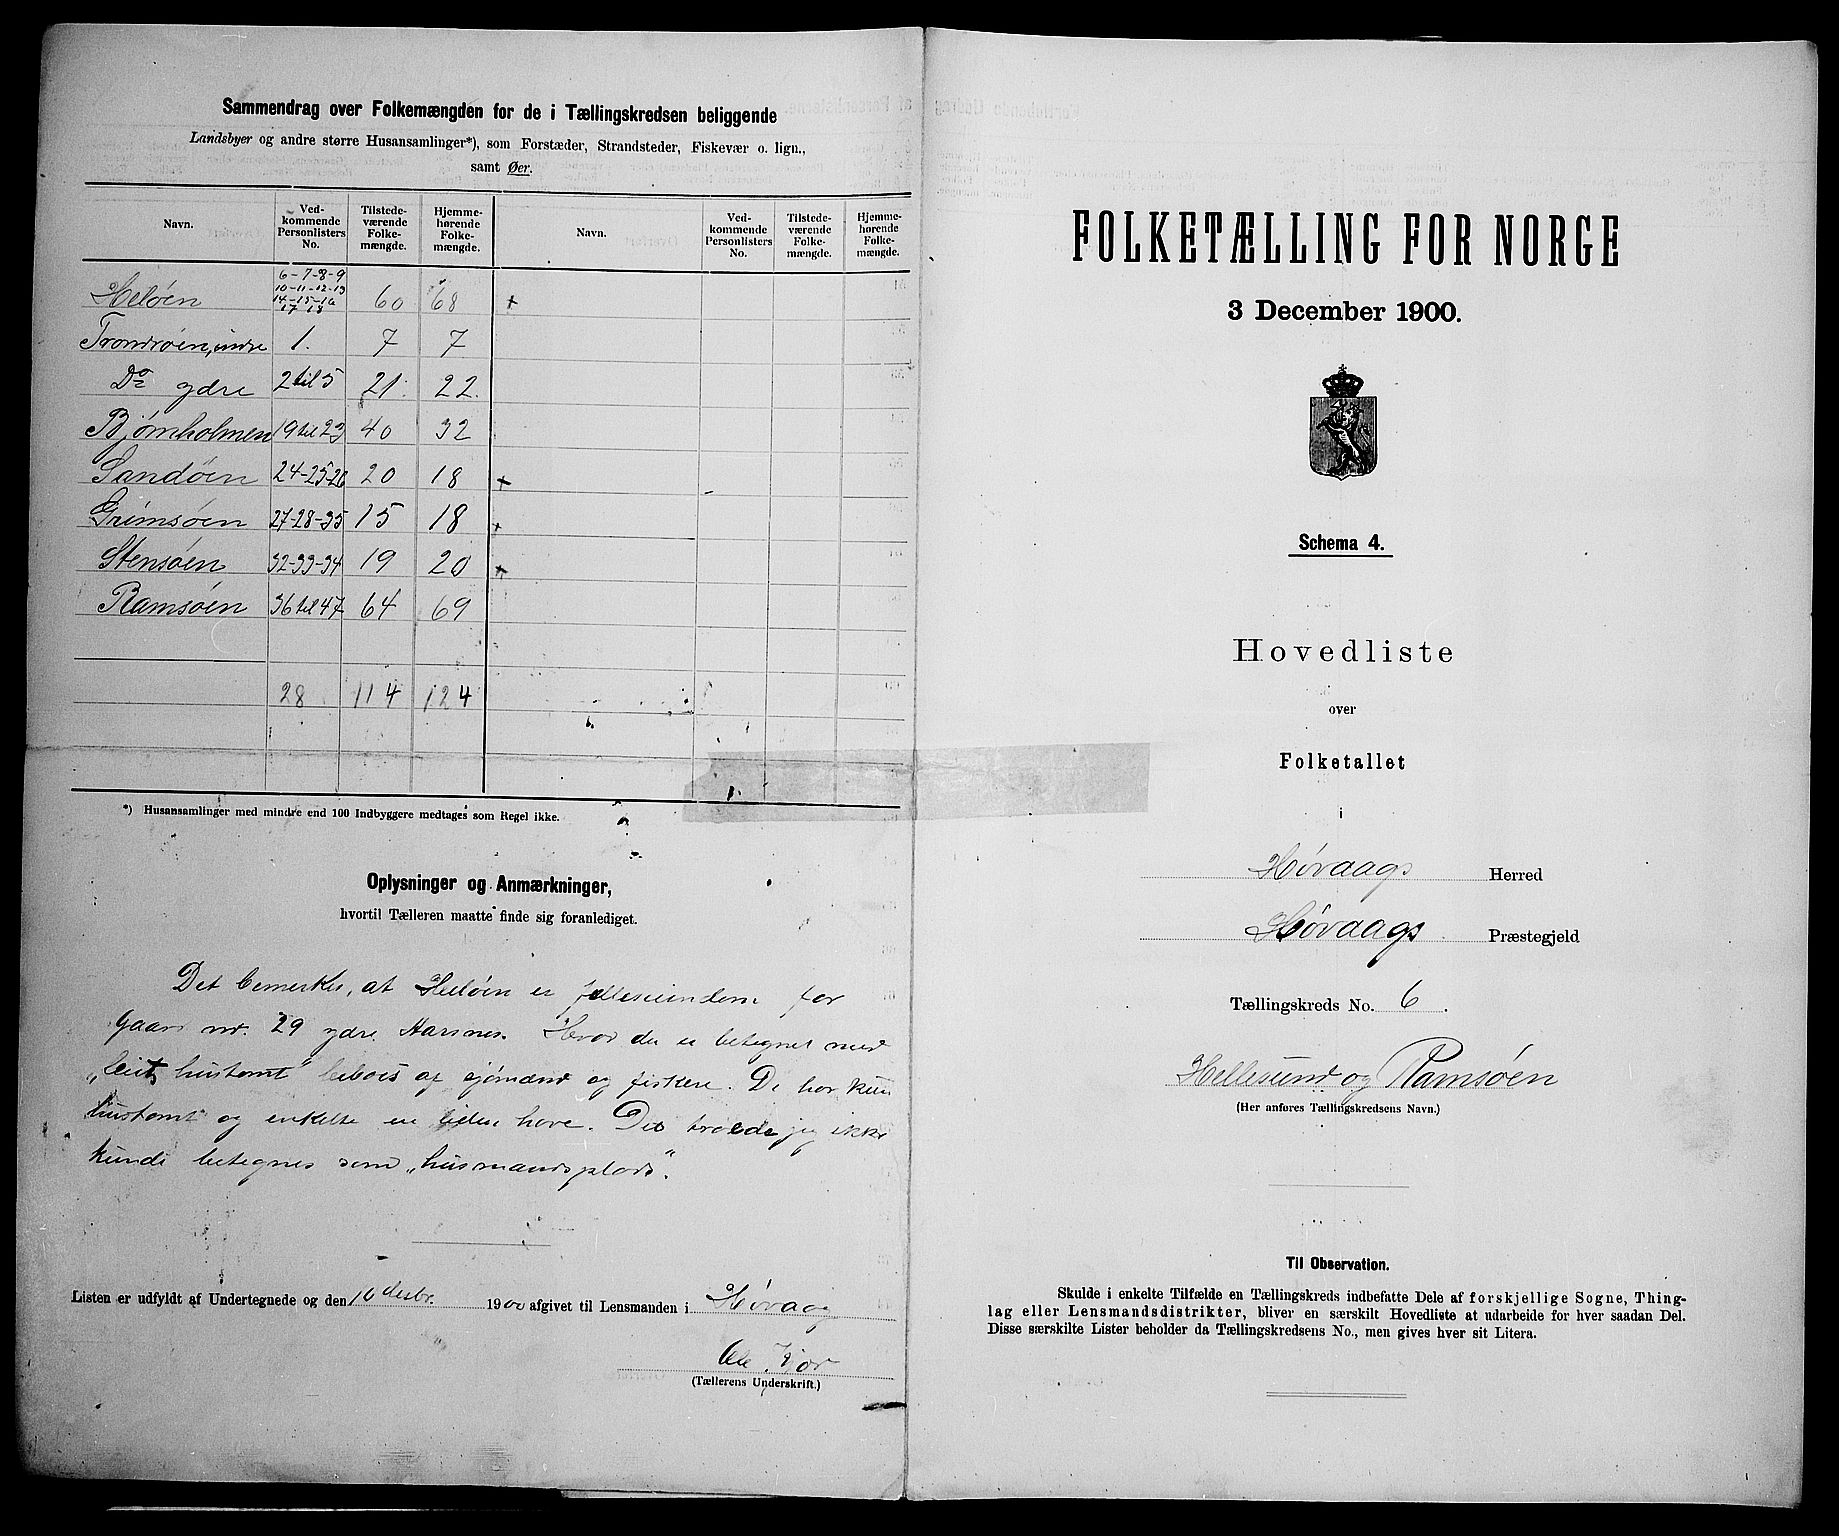 Sammendrag over Folkemængden for de i Tællingskredsen beliggende
Landsbyer og andre større Husansamlinger*), som Forstæder, Strandsteder, Fiskevær o. lign.,
samt Øer.
Navn. Ved-kommende Personlisters No. Tilstede-værende Folke-mængde. Hjemme-hørende Folke-mængde. Navn. Ved-kommende Personlisters No. Tilstede-værende Folke-mængde. Hjemme-hørende Folke-mængde.
6-7-8-9
10-11-12-13
Heløen 14-15-16 60 68 +
17 18
Trondsøen, indre 1. 7 7
Do ydre 2 til 5 21. 22.
Bjørnholmen 19 til 23 40 32
Sandøen 24-25-26 20 18 +
Grimsøen 27-28-35 15 18 +
Stensøen 32-33-34 19 20 +
Ramsøen 36 til 47 64 69
28 114 124
*) Husansamlinger med mindre end 100 Indbyggere medtages som Regel ikke.
Oplysninger og Anmærkninger,
hvortil Tælleren maatte finde sig foranlediget.
Det bemerkes, at Heløen er felleseiendom for
gaard nr. 29 ydre Aarsnes. Hvor der er betegnet med
hustomt" beboes af sjømænd og fiskere. De har kun
hustomt og enkelte en liden have. Det troede jeg ikke
kunde betegnes som „husmandsplads".
Listen er udfyldt af Undertegnede og den 10 desbr. 1900 afgivet til Lensmanden i Høvaag
Ole
(Tællerens Underskrift.)
FOLKETÆLLING FOR NORGE
3 December 1900.
Schema 4.
Hovedliste
over
Folketallet
i
Høvaags Herred
Høvaags Præstegjeld
Tællingskreds No. 6.
Hellesund og Ramsøen
(Her anføres Tællingskredsens Navn.)
Til Observation.
Skulde i enkelte Tilfælde en Tællingskreds indbefatte Dele af forskjellige Sogne, Thing-
lag eller Lensmandsdistrikter, bliver en særskilt Hovedliste at udarbeide for hver saadan Del.
Disse særskilte Lister beholder da Tællingskredsens No., men gives hver sit Litera.